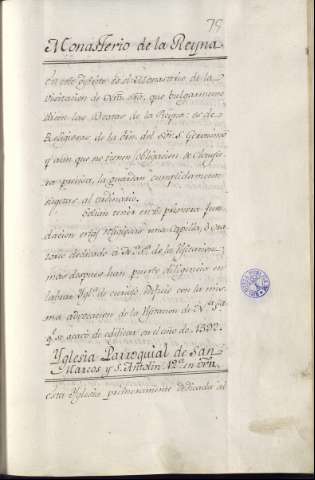 79
Monasterio de la Reyna.
en este distrito es el Monasterio de la
Visitacion de Nrã. Srã. que bulgarmente
dicen las Beatas de la Reyna: es de
Religiosas de la Orn. del Sor. S. Geronimo
y aun que no tienen obligacion de Clausu-
ra precisa, la guardan cumplidamente
sugetas al ordinario.
Solian tener en su primera fun-
dacion estas Religiosas una Capilla, ù ora-
torio dedicado à la Visitacion
mas despues han puesto diligencia en
labrar Yglª. de cumplido con la mis-
ma advocacion de la Visitacion de Nrª. Srª.
q.e se acavó de edificar en el año de 1590.
Yglesia Parroquial de San
Marcos y S. Antolin 12ª en orn.
esta Yglesia primeramente dedicada al